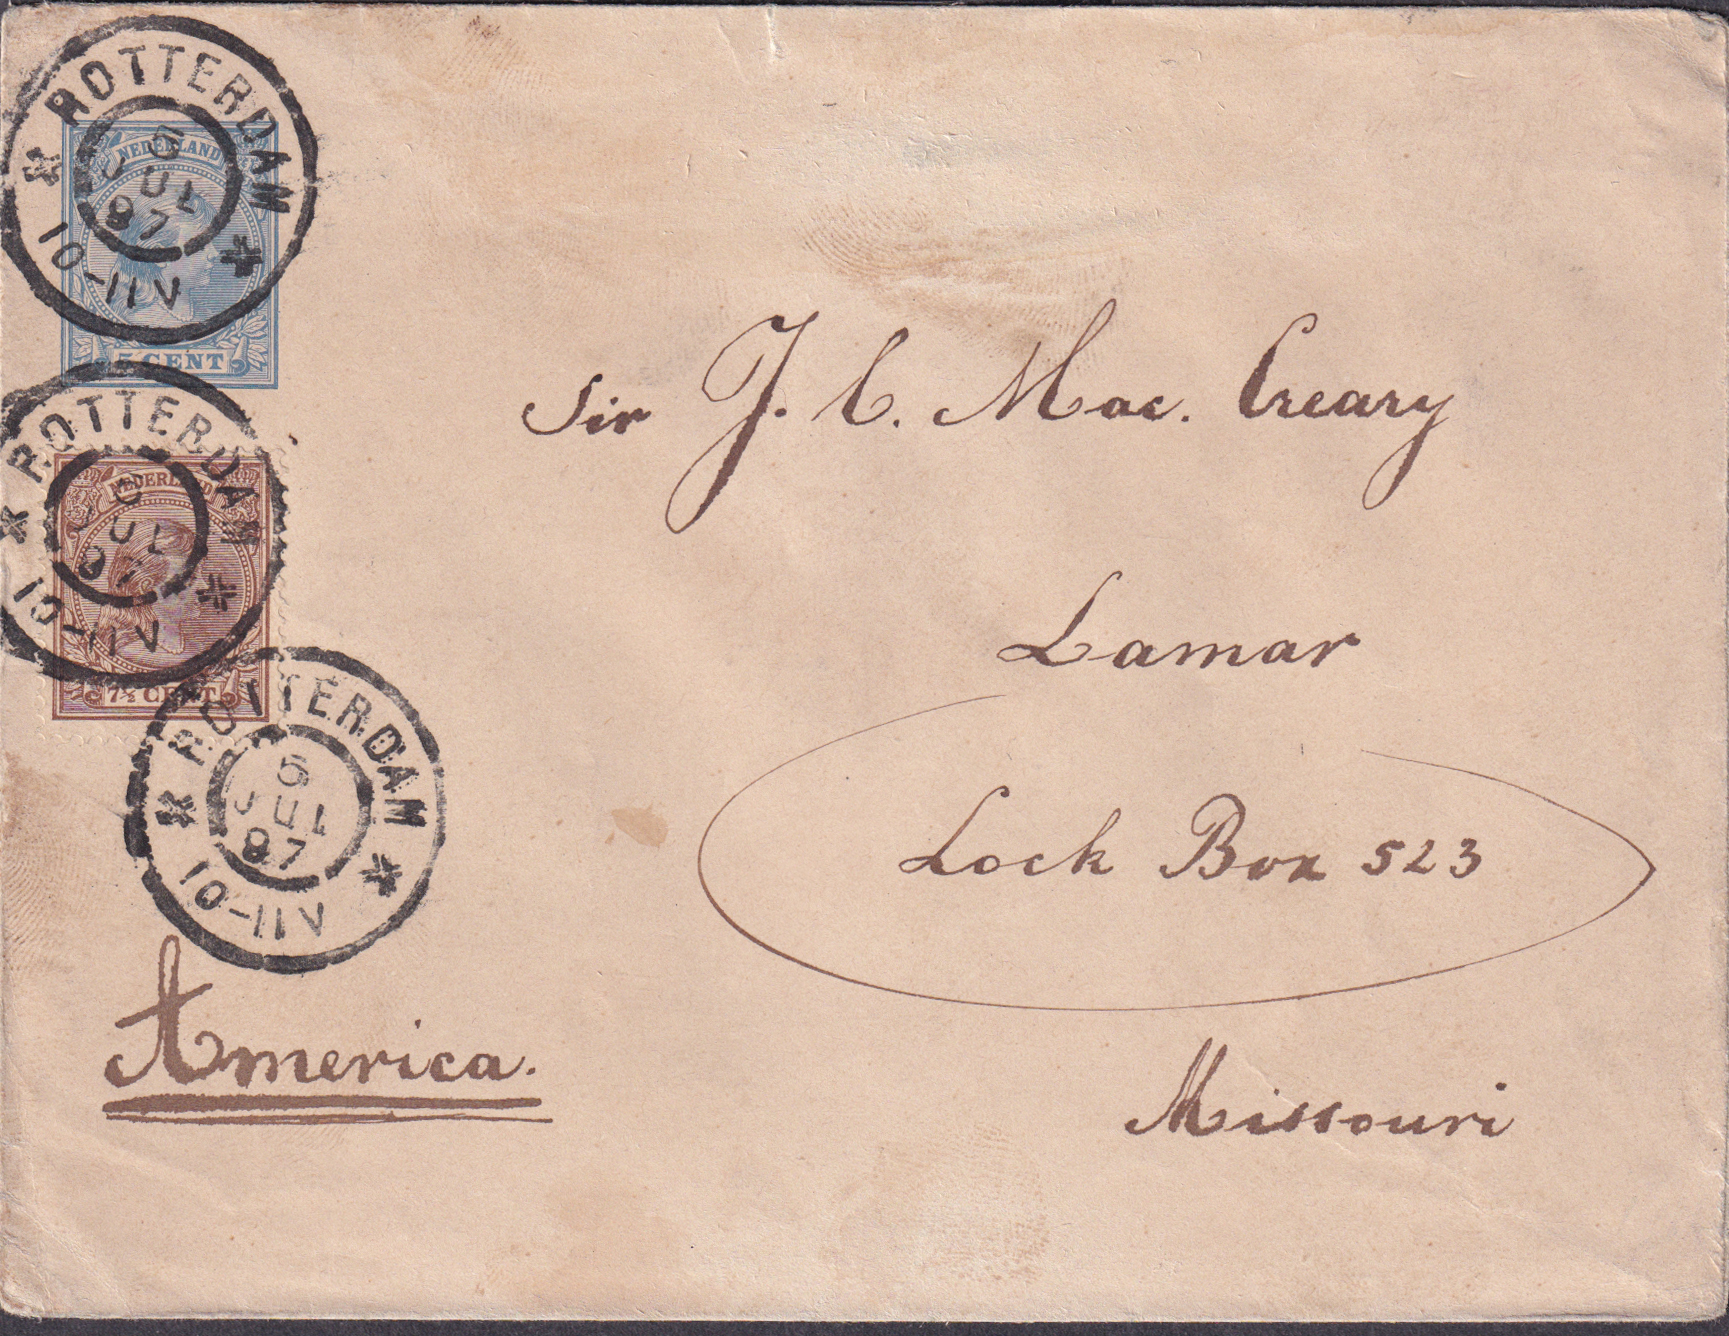 ROTTERDAM
5
JUL
97
10-11V
NEDERLAND
5 CENT
Sir J. C. Mac. Creary
ROTTERDAM
JUL
97
10-11V
NEDERLAND
7½ CENT
Lamar
ROTTERDAM
5
JUL
97
10-11V
Lock Box 523
America.
Missouri